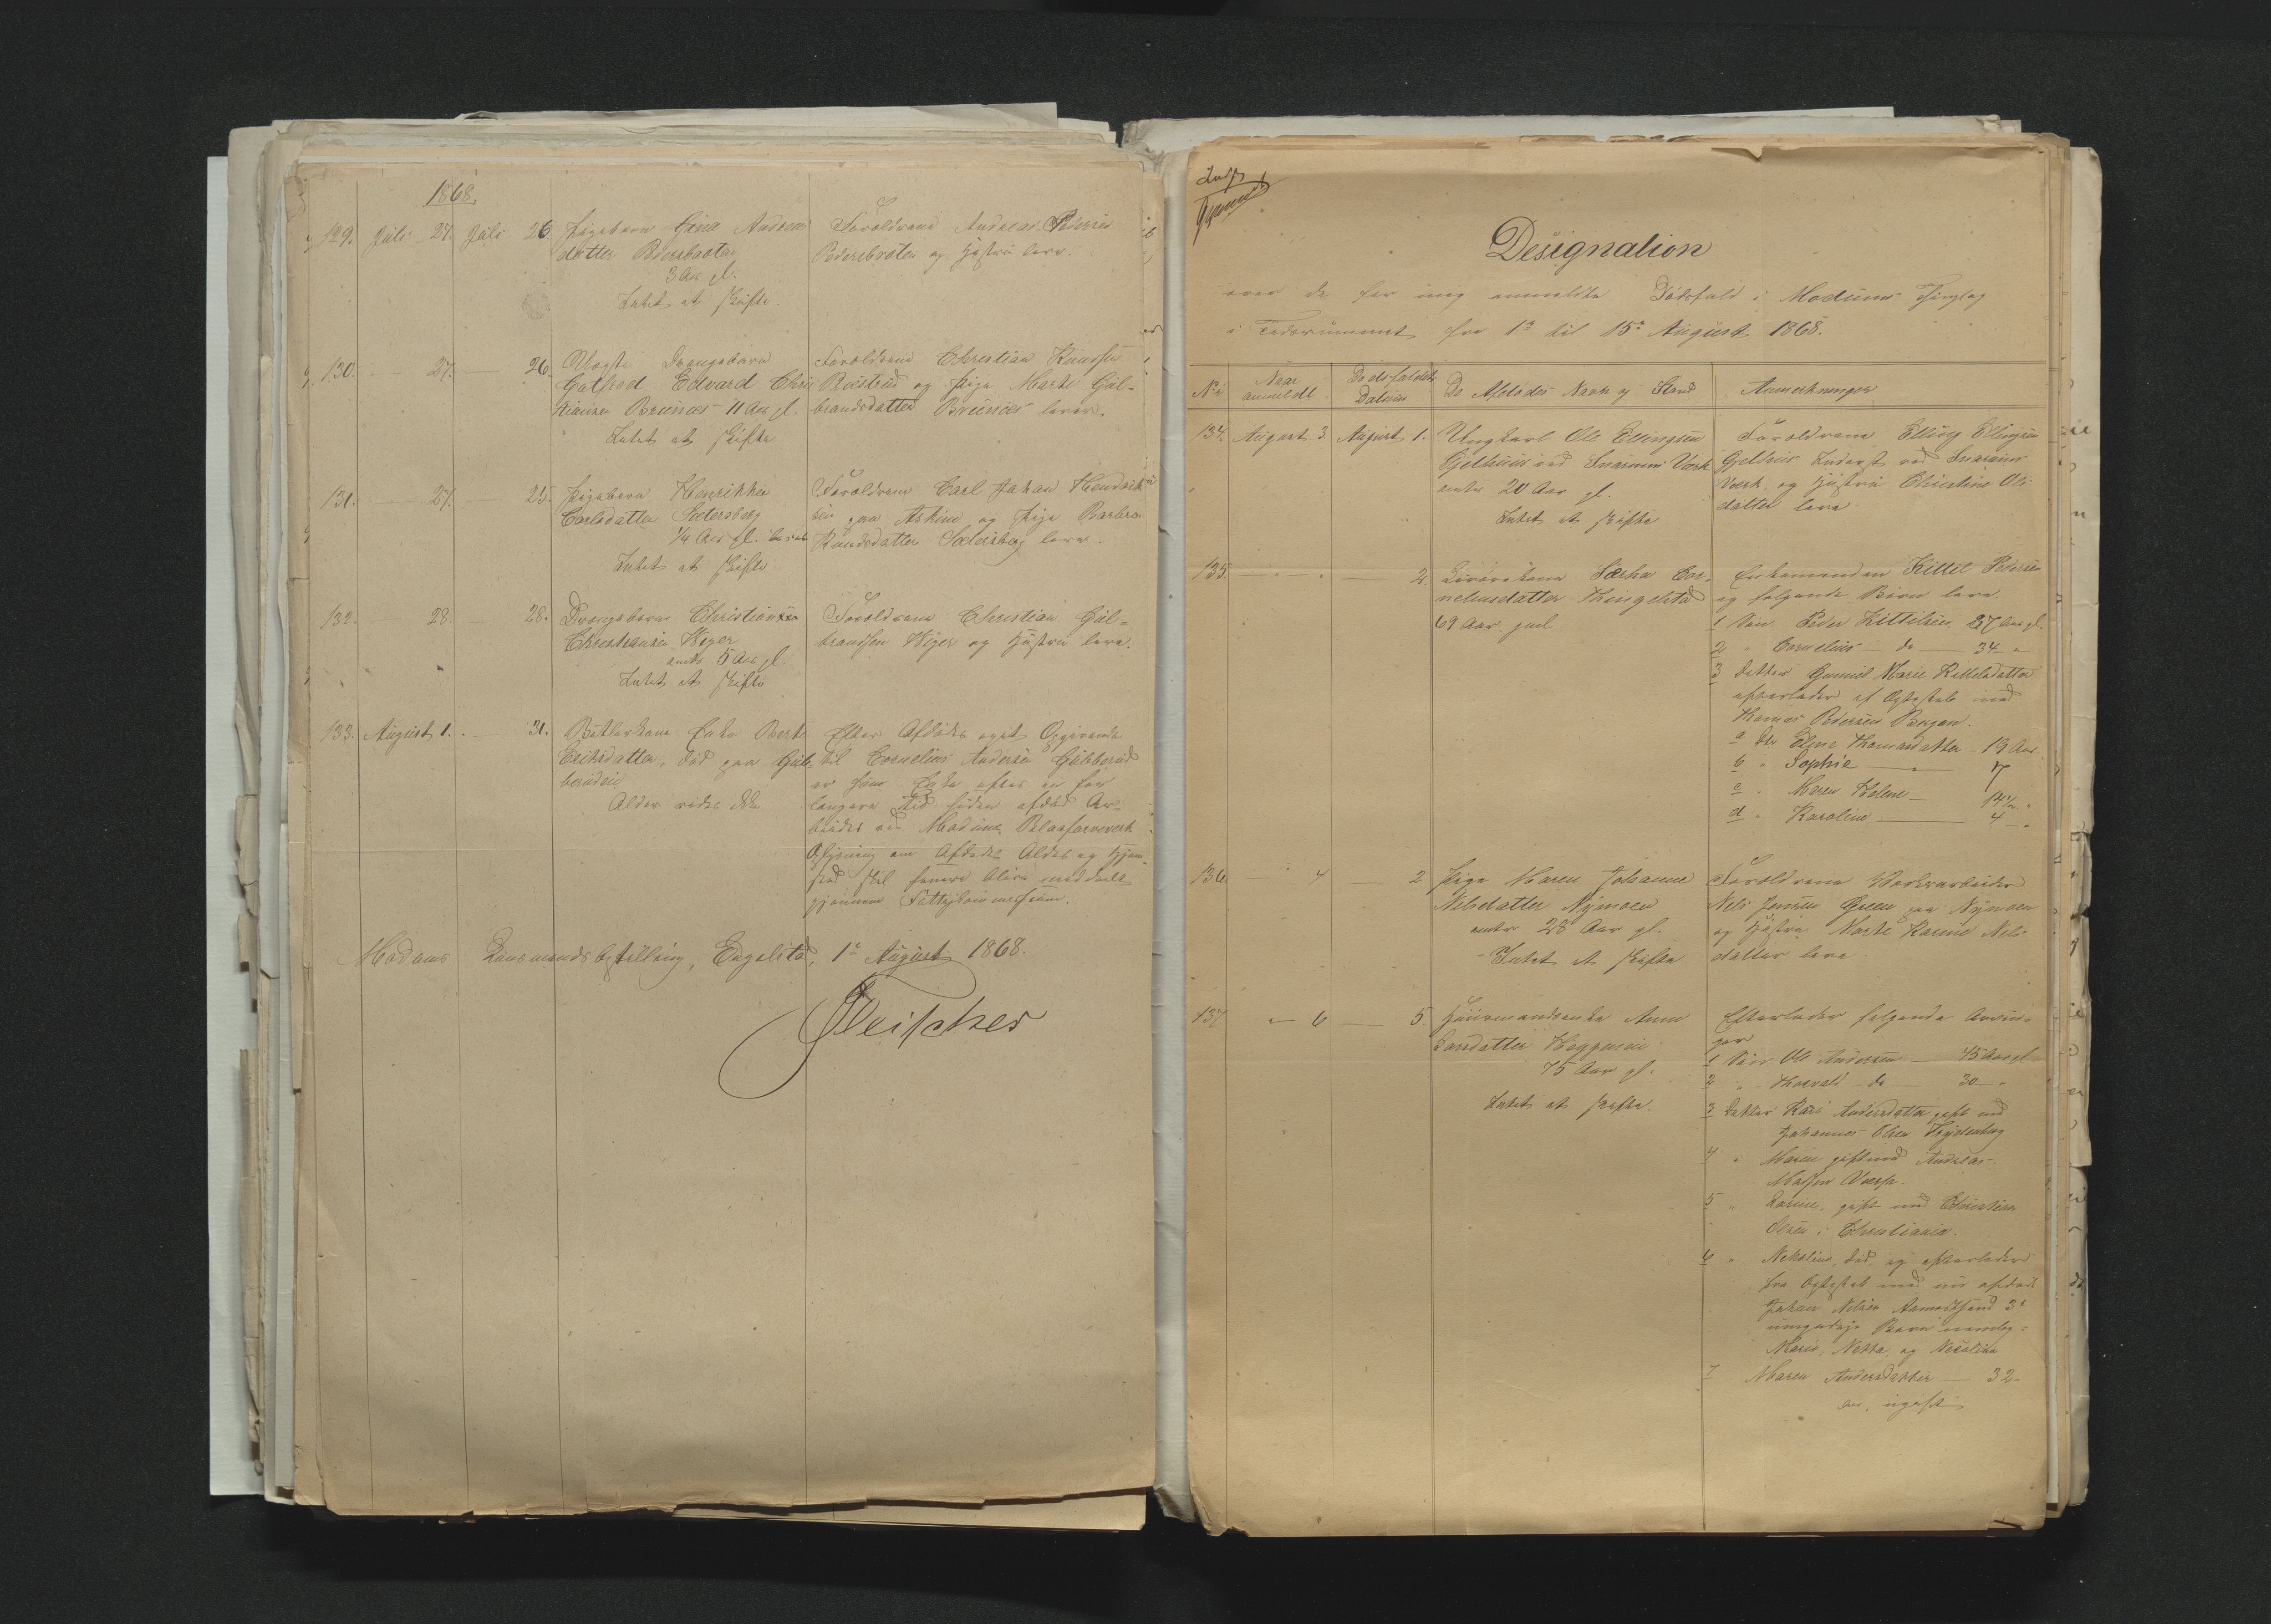 1868.
129. Juli 27. Juli 26. Pigebarn Gina Andreas
datter Pedersbraaten
3 Aar gl.
Intet at skifte.
Forældrene Andreas Pedersen
Pedersbraten og Hustru lever.
130. — 27. — 26. Uægte Drengebarn
Gotfred Edvard Chris
tiansen Brunæs 11 Aar gl.
Intet at skifte
Forældrene Christian Knudsen
og Pige Marte Gul-
brandsdatter Brunæs lever.
131. 27. — 25. Pigebarn Henrikke
Carlsdatter Sætersberg
1/4 Aar gl.
Intet at skifte
Forældrene Carl Johan Hendrik
sen paa Askim og Pige Barbro
Knudsdatter Sætersberg lever.
132. 28. — 28. Drengebarn Christian
Christiansen Weger
amtr 5 Aar gl.
Intet at skifte
Forældrene Christian Gul-
brandsen Weger og Hustru lever.
133. August 1. — 31. Enke Berte
Eriksdatter, død paa Gub-
berudeie
Alder vides ikke
Efter Afdødes eget Opgivende
til Cornelius Andersen Gubberud
er hun Enke efter en for
længere Tid siden afdød Ar-
beider ved Modums Blaafarveverk
Oplysning om Afdødes Alder og Hjem-
sted skal senere blive meddeelt
gjennem Fattigkommissionen.
Modums Lensmandsbestilling, Engelstad, 1e August 1868.
Fleischer
Designation
over de for mig anmeldte Dødsfald i Modums Thinglag
i Tidsrummet fra 1e til 15e August 1868.
No Naar anmeldt Dødsfaldets Datum De Afdødes Navn og Stand Anmerkninger
134. August 3. August 1. Ungkarl Ole Ellingsen
Gjethuus ved Snarums Værk
amtr 20 Aar gl.
Intet at skifte
Forældrene Elling Ellingsen
Gjethuus Inderst ved Snarums
Værk og Hustru Christine Ols
datter lever
135. — 2. Cor-
neliusdatter Thingelstad
69 Aar gml
Enkemanden Kittil Pedersen
og følgende Børn lever.
1 Søn Peder Kittilsen 37 Aar gl.
2 " Cornelius — do — 34 — "
3 Datter Gunnil Marie Kittilsdatter
efterlader af Ægteskab med
Thomas Pedersen
a Dtr Eline Thomasdatter - 13 Aar
b " Sophie — " — 7
c " Maren Helene — 14 1/2 "
d " Karoline — 4 "
136. — 4 — 2 Pige Maren Johanne
Nilsdatter Nymoen
amtr 28 Aar gl.
Intet at skifte
Forældrene Værksarbeider
Nils Jensen Green paa Nymoen
og Hustru Marte Karine Nils
datter lever
137. — 6 — 5 Huusmandsenke Anne
Larsdatter
75 Aar gl.
Intet at skifte.
Efterlader følgende Arvin-
ger
1 Søn Ole Andersen — 45 Aar gl
2 " Thorvald — do — 30 — "
3 Datter Kari Andersdatter gift med
Johannes Olsen
4 " Maren gift med Andreas
5 " Karine, gift med Christian
Olsen i Christiania.
6 " død, og efterlader
fra Ægteskab med nu afdøde
Johan Nilsen 3e
umyndige Børn nemlig:
Marie, Netta, og Nicoline
7 Maren Andersdatter — 32
Aar, ugift